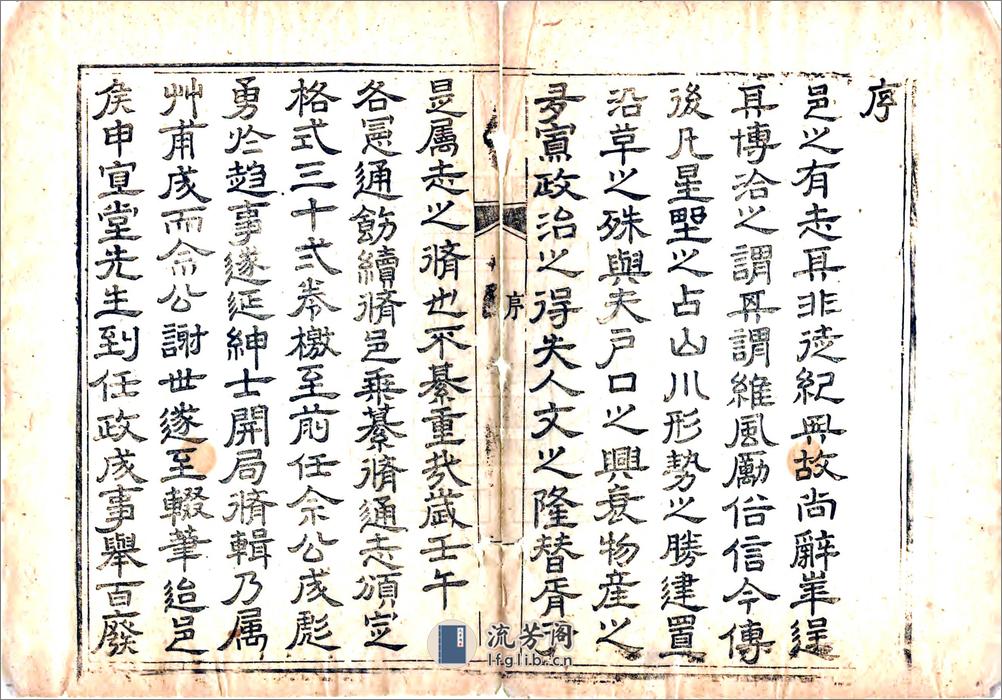 序
邑之有志其非徒紀典故尚辭華逞
其博洽之謂其謂維風勵俗信今傳
後凡星野之占山川形勢之勝建置
沿革之殊與夫戶口之興衰物產之
多寡政治之得失人文之隆替胥
序
是属志之脩也不綦重哉歲壬午
各憲通飭續脩邑乗纂脩通志頒定
格式三十弍卷檄至前任余公成彪
勇於趨事遂延紳士開局脩輯乃属
艸甫成而余公謝世遂至輟筆迨邑
侯申宣堂先生到任政成事舉百廢
流芳阁
lfglib.cn